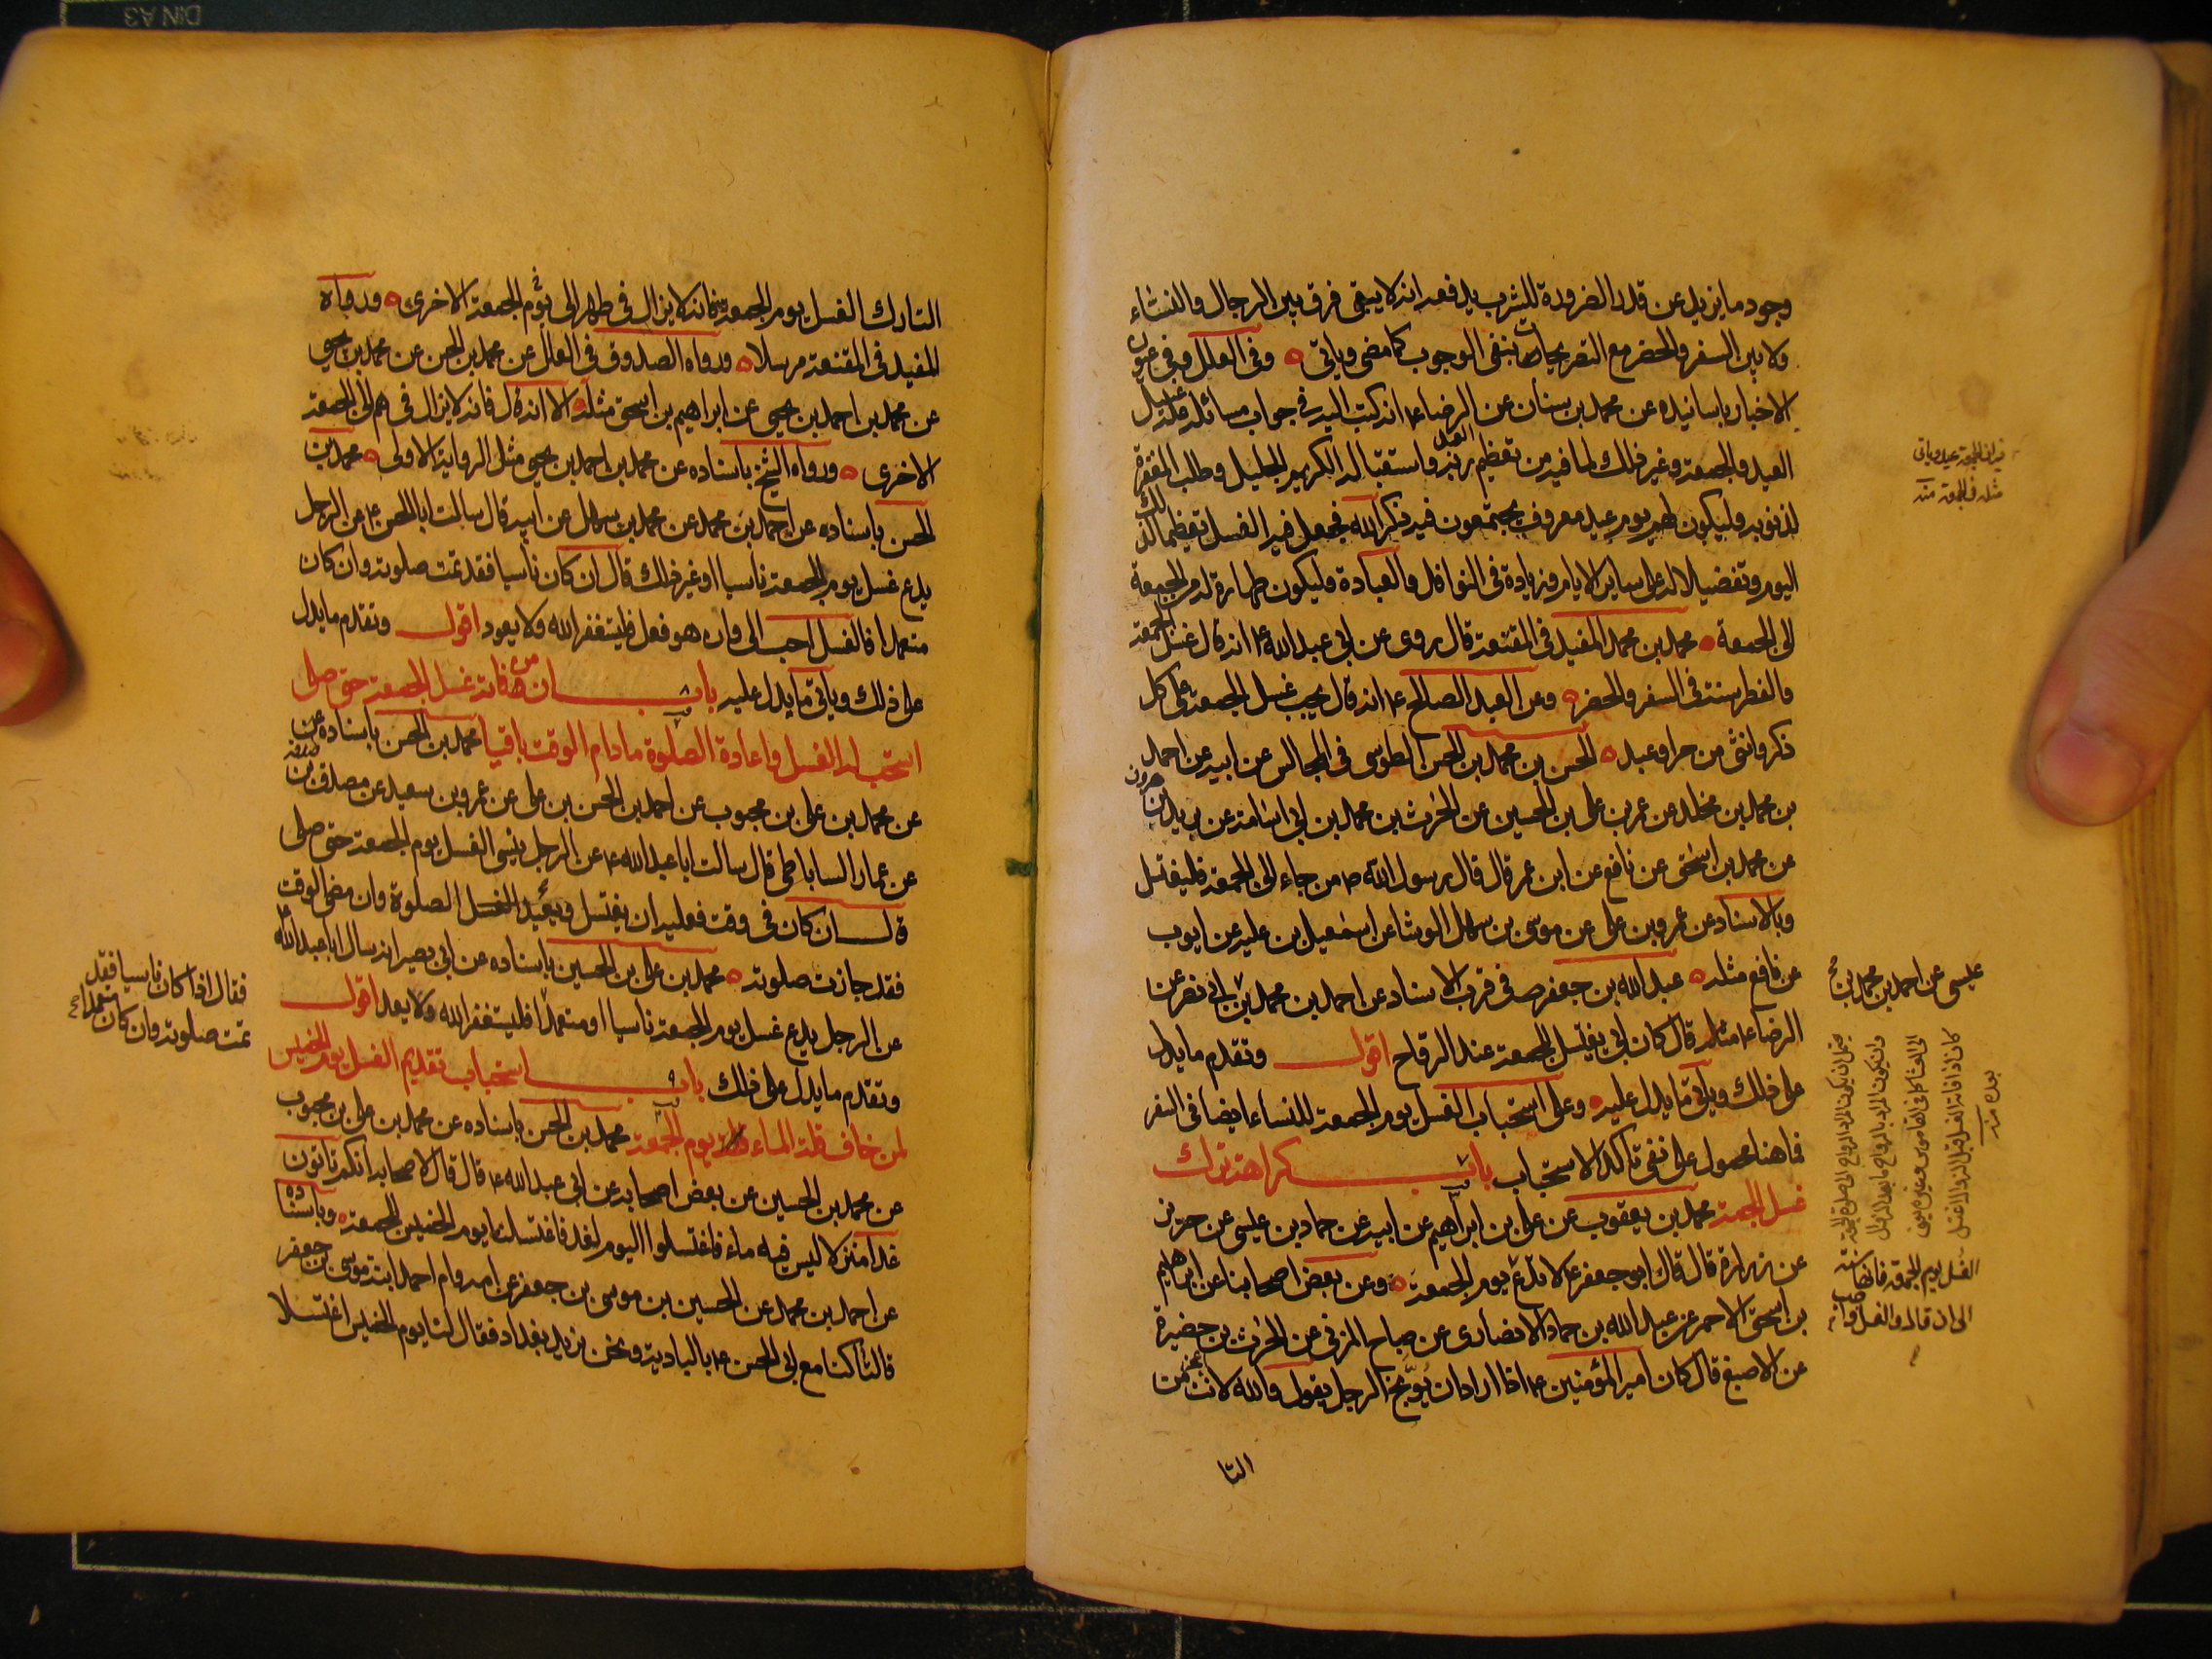 وجود ما يزيد عن قدر الضرورة للشرب يدفعه انه لا يبقى فرق بين الرجال والنساء
ولا بين السفر والحضر مع التصريحات بنفى الوجوب كما مضى وياتى ه وفى العلل وفى عيون
الاخبار باسانيده عن محمد بن سنان عن الرضا ع انه كتب اليه فى جواب مسائله علة غسل
العيد والجمعة وغير ذلك لما فيه من تعظيم العبد ربه واستقباله الكريم الجليل وطلب المغفرة
لذنوبه وليكون لهم يوم عيد معروف يجتمعون فيه ذكر الله فجعل فيه الغسل تعظيما لذلك
اليوم وتفضيلا له على ساير الايام وزيادة فى النوافل والعبادة وليكون طهارة له من الجمعة
الى الجمعة ه محمد بن محمد المفيد فى المقنعة قال روى عن ابى عبد الله ع انه قال غسل الجمعة
والفطر سنة فى السفر والحضر ه وعن العبد الصالح ع انه قال يجب غسل الجمعة على كل
ذكر وانثى من حر او عبد ه الحسن بن محمد بن الحسن الطوسى فى المجالس عن ابيه عن احمد
بن محمد بن مخلد عن عمر بن على بن الحسين عن الحرث بن محمد بن ابى اسامة عن يزيد بن هرون
عن محمد بن اسحق عن نافع عن ابن عمر قال قال رسول الله ص من جاء الى الجمعة فليغتسل
وبالاسناد عن عمرو بن على عن موسى بن سهل الوشا عن اسمعيل بن عليه عن ايوب
عن نافع مثله ه عبد الله بن جعفر فى قرب الاسناد عن احمد بن محمد بن ابى نصر عن
الرضا ع مثله قال كان ابى يغتسل للجمعة عند الرواح اقول وتقدم ما يدل
على ذلك وياتى ما يدل عليه ه وعلى استحباب الغسل يوم الجمعة للنساء ايضا فى السفر
فما هنا محمول على نفى تاكد الاستحباب باب كراهة ترك
غسل الجمعة محمد بن يعقوب عن على بن ابراهيم عن ابيه عن حماد بن عيسى عن حريز
عن زرارة قال قال ابو جعفر ع لا تدع يوم الجمعة ه وعن بعض اصحابنا عن ابراهيم
بن اسحق الاحمر عن عبد الله بن حماد الانصارى عن صباح المزنى عن الحرث بن حضيرة
عن الاصبغ قال كان امير المؤمنين ع اذا اراد ان يوبخ الرجل يقول والله لانت اعجز من
التا
عيسى عن احمد بن محمد بن
الغسل يوم الجمعة فانه سنة
الى ان قال والغسل واجب
التارك الغسل يوم الجمعة فانه لا يزال فى طهر الى يوم الجمعة الاخرى ه ورواه
المفيد فى المقنعة مرسلا ه ورواه الصدوق فى العلل عن محمد بن الحسن عن محمد بن يحيى
عن محمد بن احمد بن يحيى عن ابراهيم بن اسحق مثله ه الا انه قال فانه لا يزال فى هم الى الجمعة
الاخرى ه ورواه الشيخ باسناده عن محمد بن احمد بن يحيى مثل الرواية الاولى ه محمد بن
الحسن باسناده عن احمد بن محمد عن محمد بن سهل عن ابيه قال سالت ابا الحسن ع عن الرجل
يدع غسل يوم الجمعة ناسيا او غير ذلك قال ان كان ناسيا فقد تمت صلوته وان كان
متعمدا فالغسل احب الى وان هو فعل فليستغفر الله ولا يعود اقول وتقدم ما يدل
على ذلك وياتى ما يدل عليه باب ان من فاته غسل الجمعة حتى صلى
استحب له الغسل واعادة الصلوة ما دام الوقت باقيا محمد بن الحسن باسناده عن
عن محمد بن على بن محبوب عن احمد بن الحسن بن على عن عمرو بن سعيد عن مصدق بن صدقه
عن عمار الساباطى قال سالت ابا عبد الله ع عن الرجل ينسى الغسل يوم الجمعة حتى صلى
قال ان كان فى وقت فعليه ان يغتسل ويعيد الصلوة وان مضى الوقت
فقد جازت صلوته ه محمد بن على بن الحسين باسناده عن ابى بصير انه سال ابا عبد الله ع
عن الرجل يدع غسل يوم الجمعة ناسيا او متعمدا فليستغفر الله ولا يعد اقول
وتقدم ما يدل على ذلك باب استحباب تقديم الغسل يوم الخميس
لمن خاف قلة الماء يوم الجمعة محمد بن الحسن باسناده عن محمد بن على بن محبوب
عن محمد بن الحسين عن بعض اصحابه عن ابى عبد الله ع قال قال لاصحابه انكم تاتون
غدا منزلا ليس فيه ماء فاغتسلوا اليوم لغد فاغتسلنا يوم الخميس للجمعة ه وباسناده
عن احمد بن محمد عن الحسين بن موسى بن جعفر عن امه وام احمد ابنة موسى بن جعفر
قالتا كنا مع ابى الحسن ع بالبادية ونحن نريد بغداد فقال لنا يوم الخميس اغتسلا
فقال اذا كان ناسيا فقد
تمت صلوته وان كان متعمدا